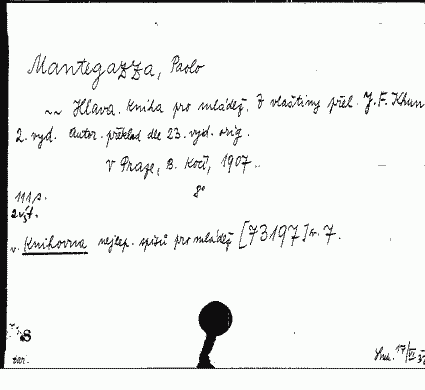 Mantegazza, Paolo
~~ Hlava. Kniha pro mládež. Z vlaštiny přel. J. F. Khun
2. vyd. Autor. překlad dle 23. vyd. orig.
V Praze, B. Kočí, 1907.
8°
111 s.
2 výt.
v. Knihovna nejlep. spisů pro mládež [73197] sv. 7.
S
var.
17/VI